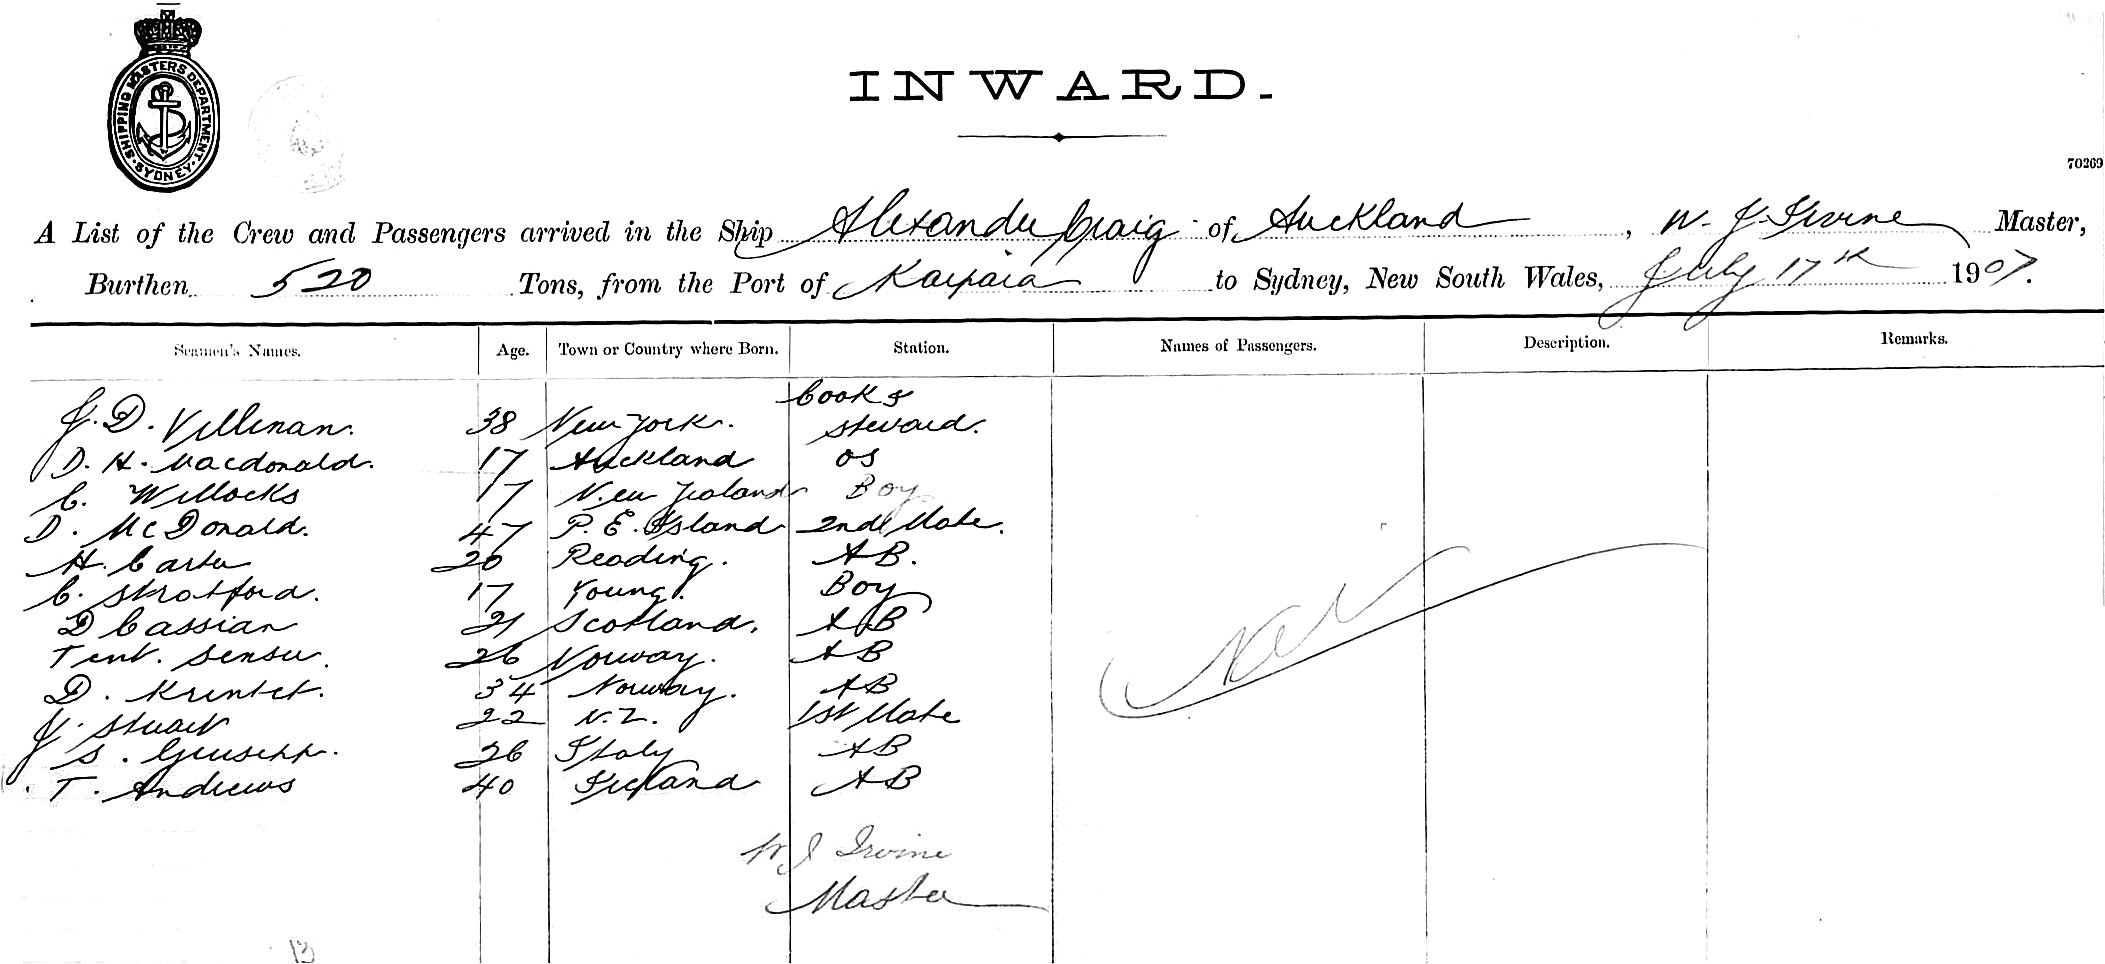 SHIPPING MASTERS DEPARTMENT. SYDNEY
INWARD.
70269
A List of the Crew and Passengers arrived in the Ship Alexander Craig of Auckland, W. J. Irvine Master,
Burthen 520 Tons, from the Port of Kaipara to Sydney, New South Wales, July 17th 1907.
Seamen's Names. Age. Town or Country where Born. Station. Names of Passengers. Description. Remarks.
Cook &
J. D. Villinan. 38 New York. Steward.
D. H. Macdonald. 17 Auckland OS
C. Willocks 17 New Zealand Boy
D. McDonald. 47 P. E. Island 2nd Mate.
H. Carter 20 Reading. AB.
C. Stratford. 17 Young. Boy
D Cassian 21 Scotland. AB
26 Norway. AB
D. 34 Norway. AB
J. Stuart 22 N.Z. 1st Mate
S. 26 Italy AB
T. Andrews 40 Ireland AB
W J Irvine
Master
13